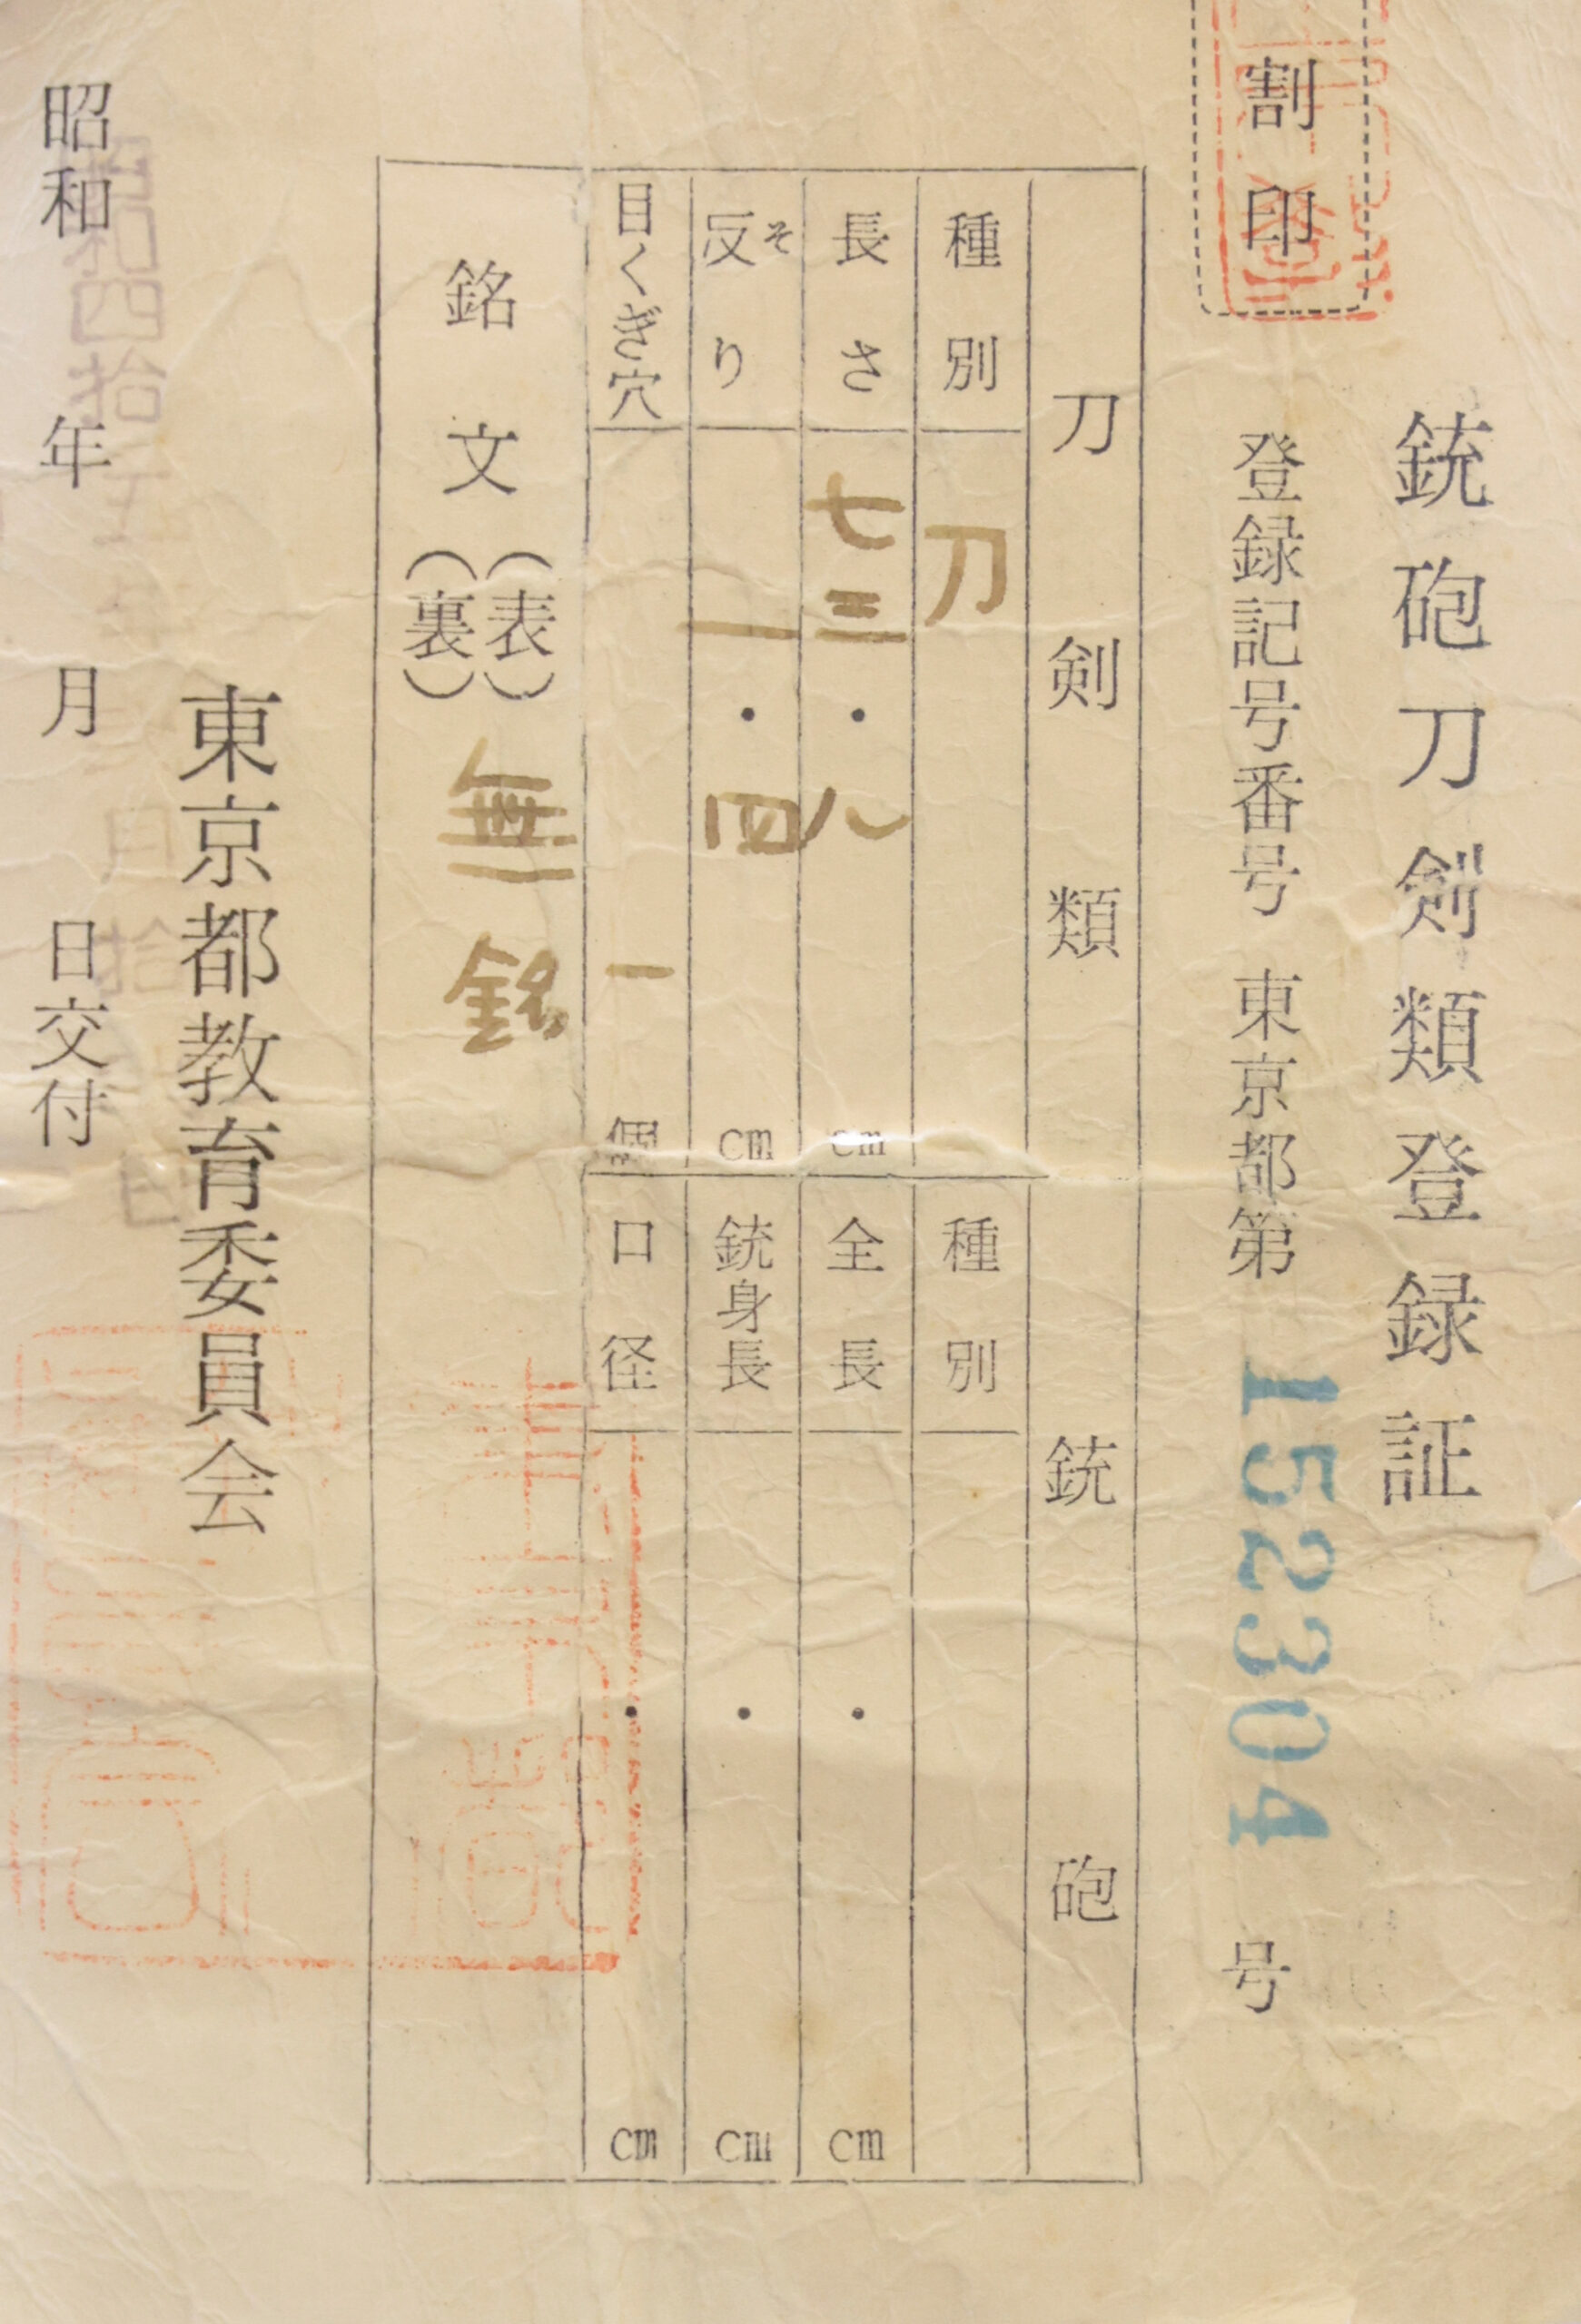 銃砲刀剣類登録証
割印
登録記号番号 東京都第 152304 号
刀剣類
種別 刀
長さ 七三・八 cm
反り そ 一・四 cm
目くぎ穴 一 個
銃砲
種別
全長 ・ cm
銃身長 ・ cm
口径 ・ cm
銘文 (表) (裏) 無銘
東京都教育委員会
昭和四拾
昭和 年 月 日交付